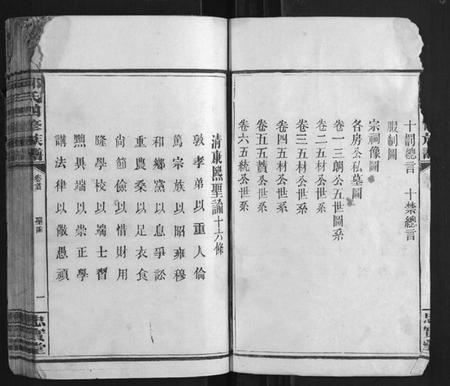 十罰總言　十禁總言
服制圖
宗祠像圖
各房公私墓圖
卷一三朗公五世圖系
卷二五材公世系
卷三五材公世系
卷四五材公世系
卷五五義公世系
卷六五統公世系
清康熙聖諭十六條
敦孝弟以重人倫
篤宗族以昭雍穆
和鄉黨以息爭訟
重農桑以足衣食
尚節儉以惜財用
隆學校以端士習
黜異端以崇正學
講法律以儆愚頑
氏四修族譜
卷首
一
忠實堂